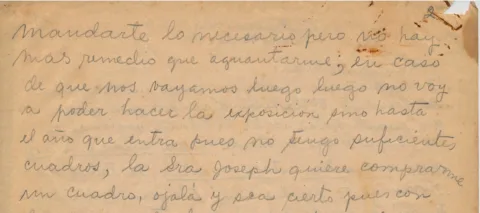 mandarte lo necesario pero no hay
mas remedio que aguantarme, en caso
de que nos vayamos luego luego no voy
a poder hacer la exposición sino hasta
el año que entra pues no tengo suficientes
cuadros, la Sra Joseph quiere comprarme
un cuadro, ojalá y sea cierto pues con